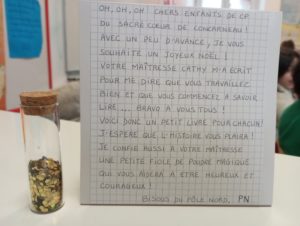 OH, OH, OH ! CHERS ENFANTS DE CP
DU SACRÉ COEUR DE CONCARNEAU !
AVEC UN PEU D'AVANCE, JE VOUS
SOUHAITE UN JOYEUX NOËL !
VOTRE MAÎTRESSE CATHY M'A ÉCRIT
POUR ME DIRE QUE VOUS TRAVAILLEZ
BIEN ET QUE VOUS COMMENCEZ À SAVOIR
LIRE ... BRAVO À VOUS TOUS !
VOICI DONC UN PETIT LIVRE POUR CHACUN!
J'ESPÈRE QUE L'HISTOIRE VOUS PLAIRA!
JE CONFIE AUSSI À VOTRE MAÎTRESSE
UNE PETITE FIOLE DE POUDRE MAGIQUE
QUI VOUS AIDERA À ÊTRE HEUREUX ET
COURAGEUX !
BISOUS DU PÔLE NORD, PN